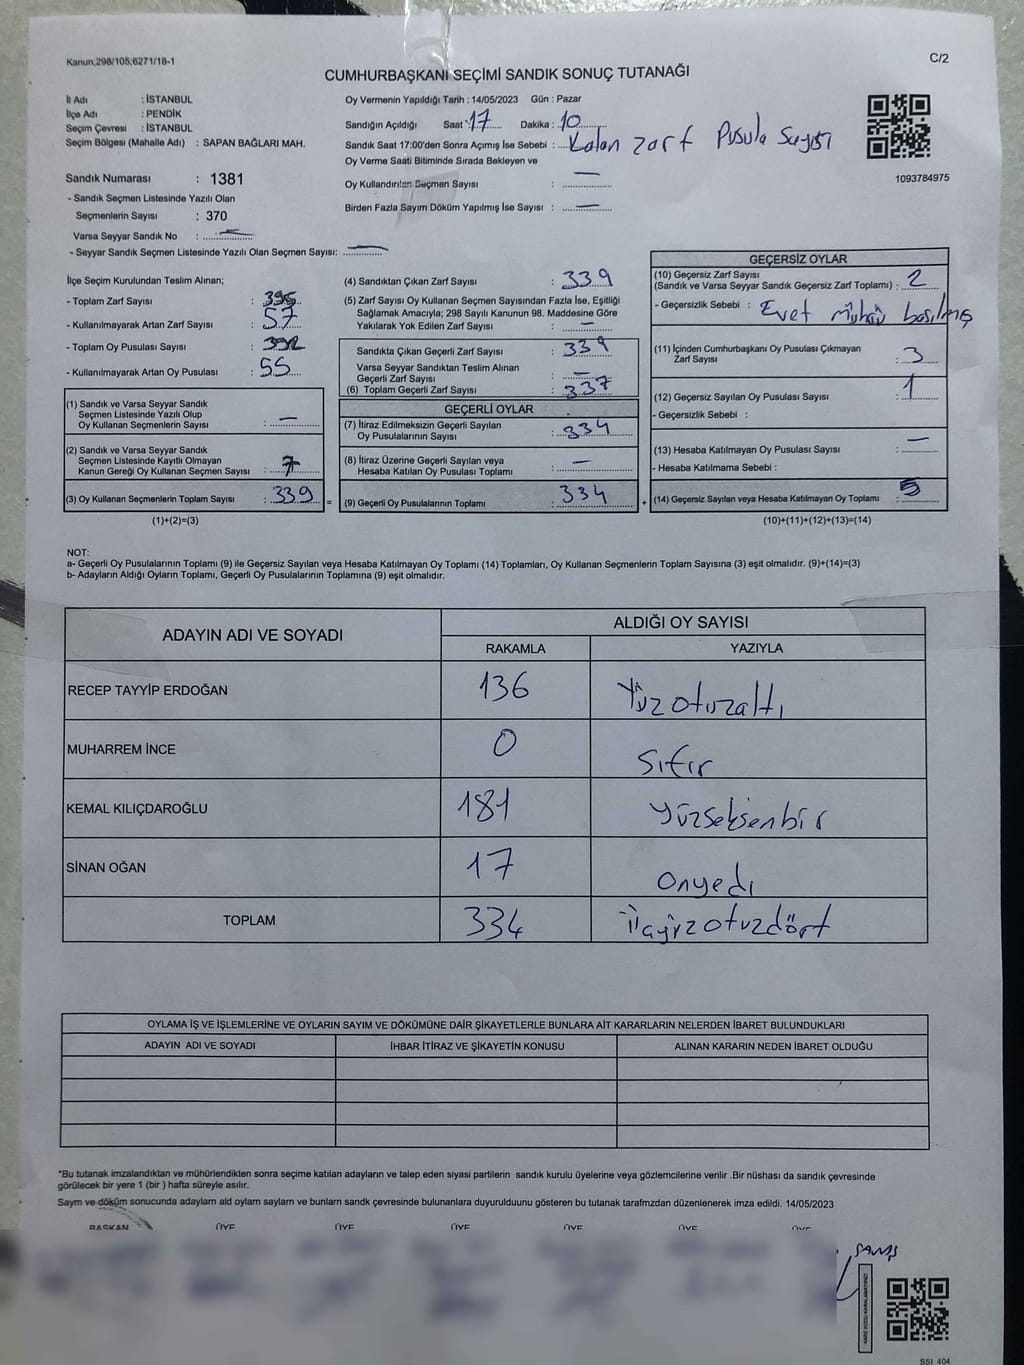 Kanun,298/105;6271/18-1
C/2
CUMHURBAŞKANI SEÇİMİ SANDIK SONUÇ TUTANAĞI
İl Adı : İSTANBUL
İlçe Adı : PENDİK
Seçim Çevresi : İSTANBUL
Seçim Bölgesi (Mahalle Adı) : SAPAN BAĞLARI MAH.
Sandık Numarası : 1381
- Sandık Seçmen Listesinde Yazılı Olan
Seçmenlerin Sayısı : 370
Varsa Seyyar Sandık No : —
- Seyyar Sandık Seçmen Listesinde Yazılı Olan Seçmen Sayısı: —
Oy Vermenin Yapıldığı Tarih : 14/05/2023 Gün : Pazar
Sandığın Açıldığı Saat : 17 Dakika : 10
Sandık Saat 17:00'den Sonra Açımış İse Sebebi : Kalan zarf Pusula Sayısı
Oy Verme Saati Bitiminde Sırada Bekleyen ve
Oy Kullandırılan Seçmen Sayısı : —
Birden Fazla Sayım Döküm Yapılmış İse Sayısı : —
1093784975
İlçe Seçim Kurulundan Teslim Alınan;
- Toplam Zarf Sayısı : 395
- Kullanılmayarak Artan Zarf Sayısı : 57
- Toplam Oy Pusulası Sayısı : 392
- Kullanılmayarak Artan Oy Pusulası : 55
(1) Sandık ve Varsa Seyyar Sandık
Seçmen Listesinde Yazılı Olup
Oy Kullanan Seçmenlerin Sayısı : —
(2) Sandık ve Varsa Seyyar Sandık
Seçmen Listesinde Kayıtlı Olmayan
Kanun Gereği Oy Kullanan Seçmen Sayısı : 7
(3) Oy Kullanan Seçmenlerin Toplam Sayısı : 339
(1)+(2)=(3)
=
(4) Sandıktan Çıkan Zarf Sayısı : 339
(5) Zarf Sayısı Oy Kullanan Seçmen Sayısından Fazla İse, Eşitliği
Sağlamak Amacıyla; 298 Sayılı Kanunun 98. Maddesine Göre
Yakılarak Yok Edilen Zarf Sayısı : —
Sandıkta Çıkan Geçerli Zarf Sayısı : 339
Varsa Seyyar Sandıktan Teslim Alınan
Geçerli Zarf Sayısı : —
(6) Toplam Geçerli Zarf Sayısı : 337
GEÇERLİ OYLAR
(7) İtiraz Edilmeksizin Geçerli Sayılan
Oy Pusulalarının Sayısı : 334
(8) İtiraz Üzerine Geçerli Sayılan veya
Hesaba Katılan Oy Pusulası Toplamı : —
(9) Geçerli Oy Pusulalarının Toplamı : 334
+
GEÇERSİZ OYLAR
(10) Geçersiz Zarf Sayısı
(Sandık ve Varsa Seyyar Sandık Geçersiz Zarf Toplamı) : 2
- Geçersizlik Sebebi : Evet mührü basılmış
(11) İçinden Cumhurbaşkanı Oy Pusulası Çıkmayan
Zarf Sayısı : 3
(12) Geçersiz Sayılan Oy Pusulası Sayısı : 1
- Geçersizlik Sebebi :
(13) Hesaba Katılmayan Oy Pusulası Sayısı : —
- Hesaba Katılmama Sebebi :
(14) Geçersiz Sayılan veya Hesaba Katılmayan Oy Toplamı : 5
(10)+(11)+(12)+(13)=(14)
NOT:
a- Geçerli Oy Pusulalarının Toplamı (9) ile Geçersiz Sayılan veya Hesaba Katılmayan Oy Toplamı (14) Toplamları, Oy Kullanan Seçmenlerin Toplam Sayısına (3) eşit olmalıdır. (9)+(14)=(3)
b- Adayların Aldığı Oyların Toplamı, Geçerli Oy Pusulalarının Toplamına (9) eşit olmalıdır.
ADAYIN ADI VE SOYADI
ALDIĞI OY SAYISI
RAKAMLA YAZIYLA
RECEP TAYYİP ERDOĞAN 136 Yüzotuzaltı
MUHARREM İNCE 0 Sıfır
KEMAL KILIÇDAROĞLU 181 yüzseksenbir
SİNAN OĞAN 17 Onyedi
TOPLAM 334
OYLAMA İŞ VE İŞLEMLERİNE VE OYLARIN SAYIM VE DÖKÜMÜNE DAİR ŞİKAYETLERLE BUNLARA AİT KARARLARIN NELERDEN İBARET BULUNDUKLARI
ADAYIN ADI VE SOYADI İHBAR İTİRAZ VE ŞİKAYETİN KONUSU ALINAN KARARIN NEDEN İBARET OLDUĞU
"Bu tutanak imzalandıktan ve mühürlendikten sonra seçime katılan adayların ve talep eden siyasi partilerin sandık kurulu üyelerine veya gözlemcilerine verilir .Bir nüshası da sandık çevresinde
görülecek bir yere 1 (bir ) hafta süreyle asılır.
Saym ve döküm sonucunda adaylarn ald oylarn saylarn ve bunlarn sandk çevresinde bulunanlara duyurulduunu gösteren bu tutanak tarafmzdan düzenlenerek imza edildi. 14/05/2023
BAŞKAN ÜYE ÜYE ÜYE ÜYE ÜYE ÜYE
KARE KODU KARALAMAYINIZ!
SSI_404